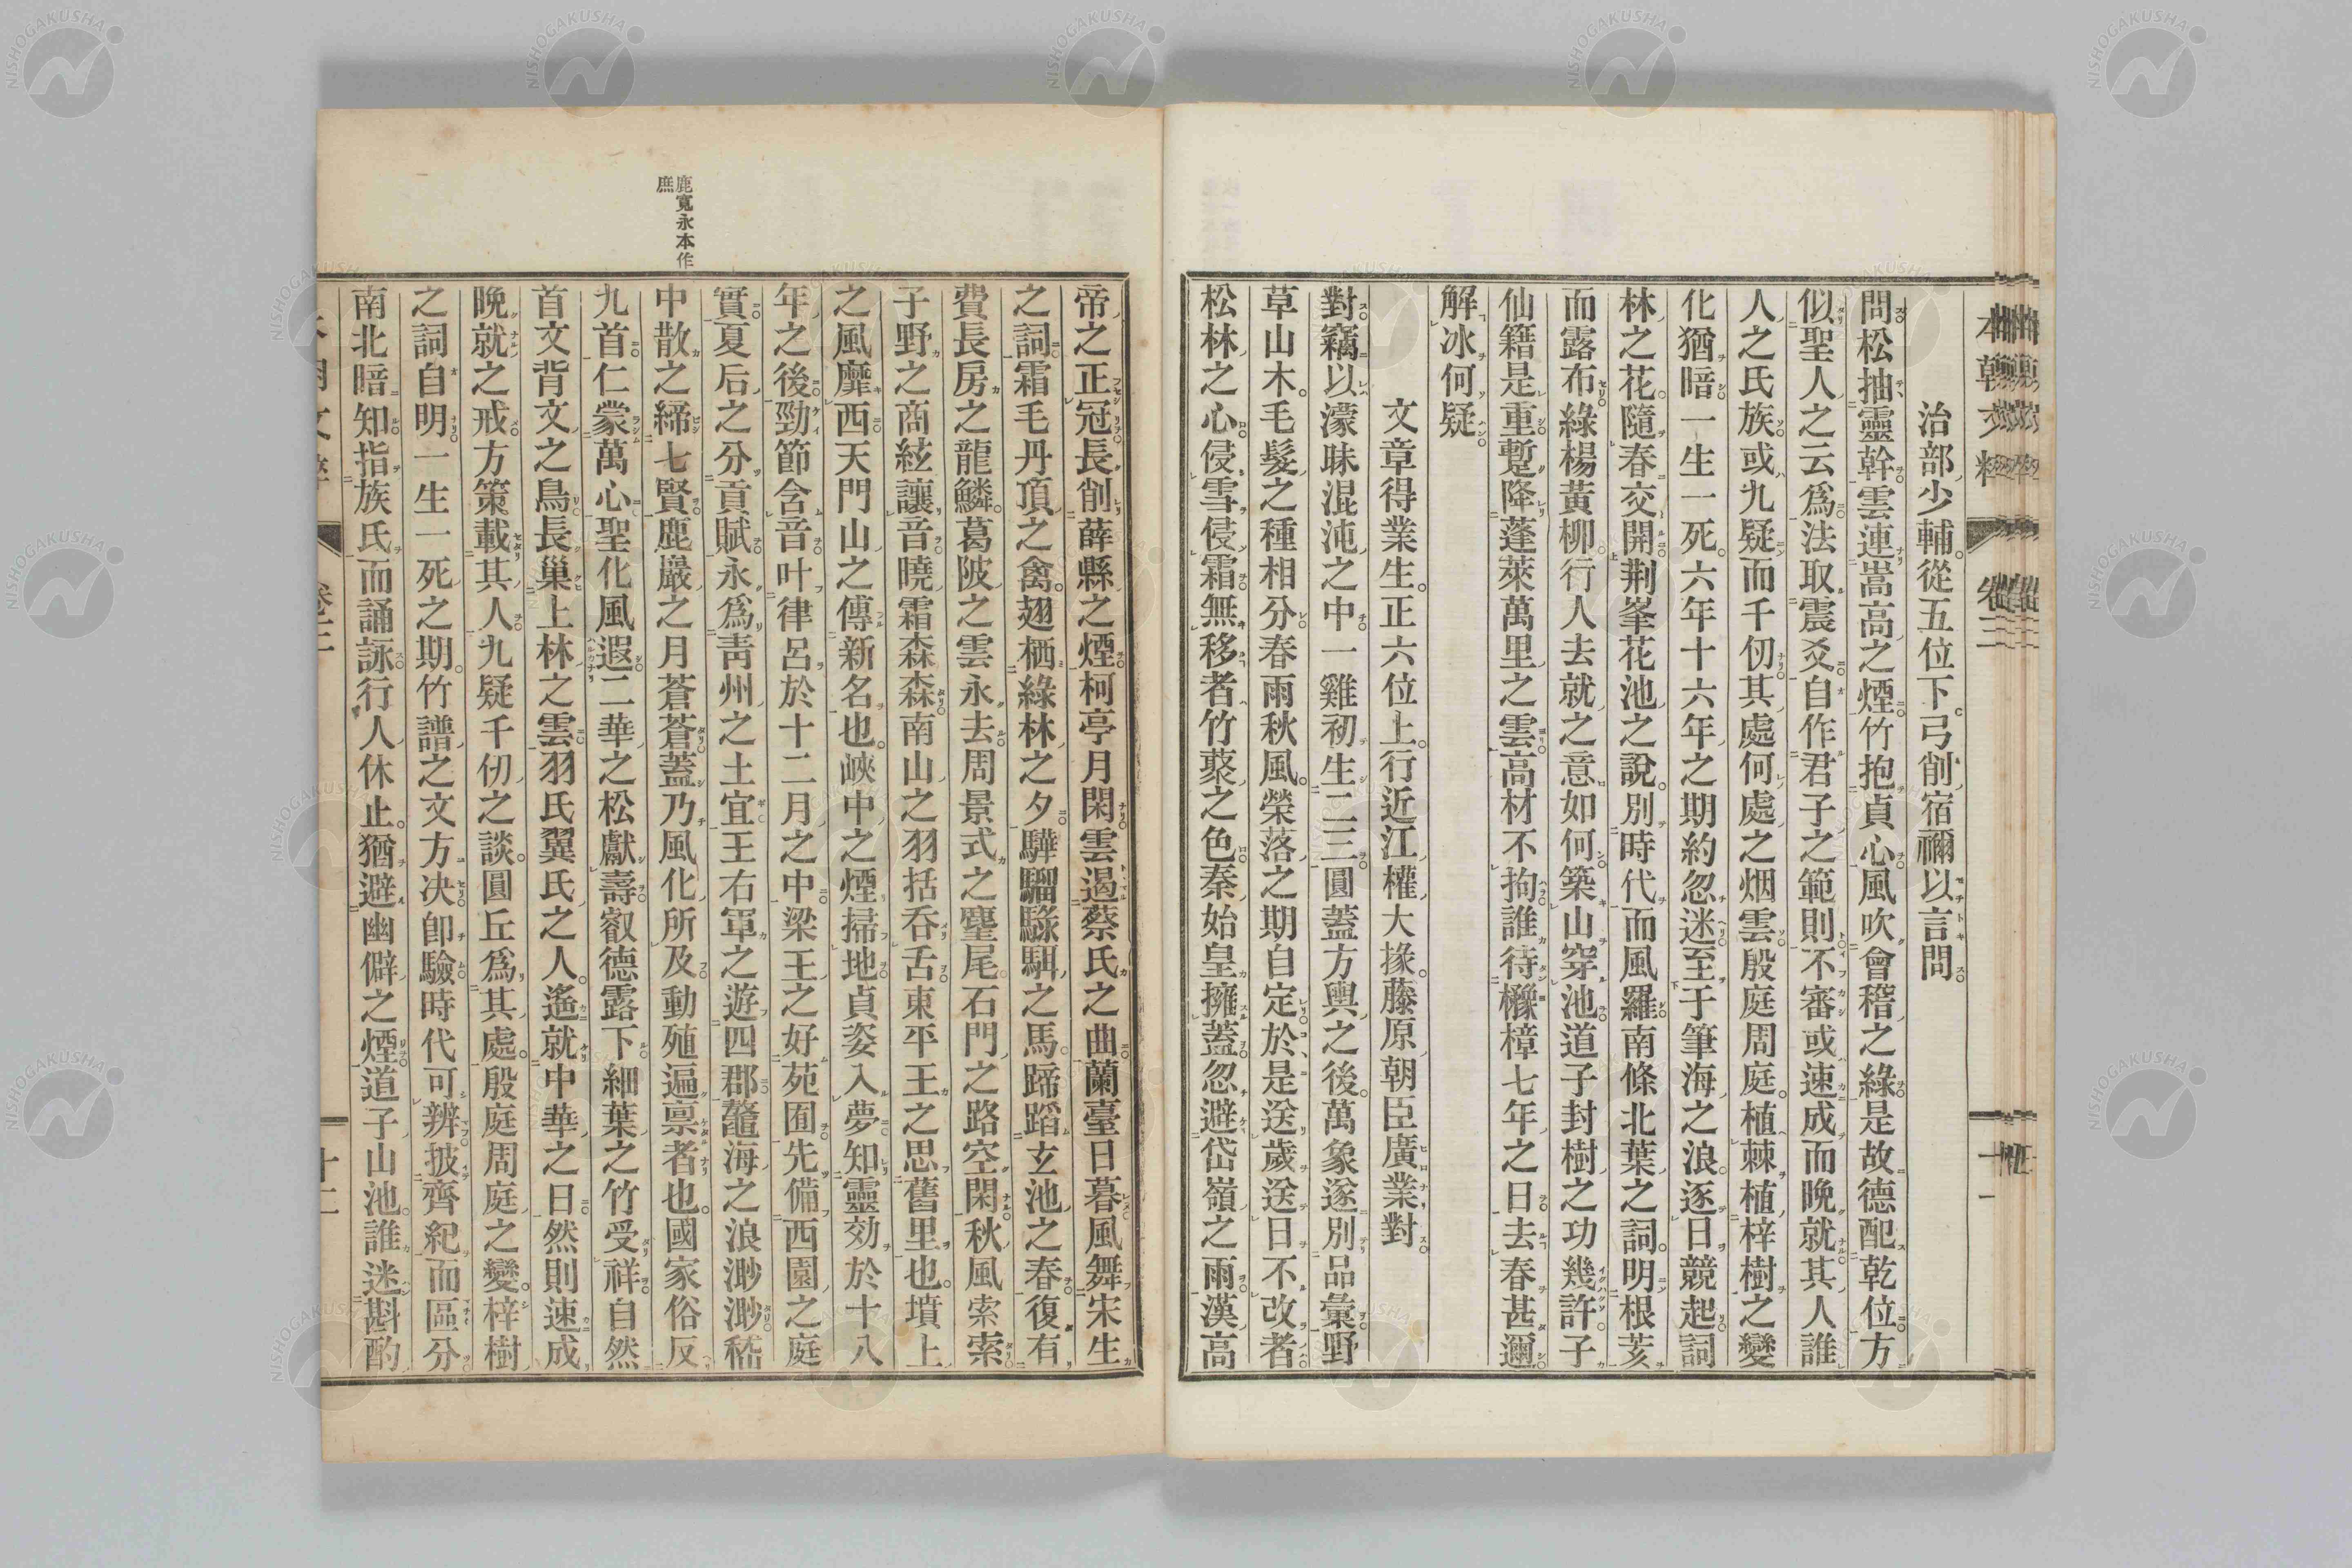 治部少輔。從五位下。弓削宿禰以言問
問。松抽靈幹。雲連嵩高之煙。竹抱貞心。風吹會稽之綠。是故德配乾位。方
似聖人之云爲。法取震爻。自作君子之範則。不審或速成而晚就。其人誰
人之氏族。或九疑而千仞。其處何處之烟雲。殷庭周庭。植棘植梓樹之變
化猶暗。一生一死。六年十六年之期約忽迷。至于筆海之浪。逐日競起。詞
林之花。隨春交開。荆峯花池之說。別時代而風羅。南條北葉之詞。明根荄
而露布。綠楊黃柳。行人去就之意如何。築山穿池。道子封樹之功幾許。子
仙籍是重。暫降蓬萊萬里之雲。高材不拘。誰待櫲樟七年之日。去春甚邇。
解冰何疑。
文章得業生。正六位上。行近江權大掾。藤原朝臣廣業對
對。竊以濛昧混沌之中。一雞初生二三。圓蓋方輿之後。萬象遂別品彙。野
草山木。毛髮之種相分。春雨秋風。榮落之期自定。於是送歲送日。不改者
松林之心。侵雪侵霜。無移者竹藂之色。秦始皇擁蓋。忽避岱嶺之雨。漢高
帝之正冠。長削薛縣之煙。柯亭月閑。雲遏蔡氏之曲。蘭臺日暮。風舞宋生
之詞。霜毛丹頂之禽。翅栖綠林之夕。驊騮騄駬之馬。蹄蹈玄池之春。復有
費長房之龍鱗。葛陂之雲永去。周景式之麈尾。石門之路空閑。秋風索索。
子野之商絃讓音。曉霜森森。南山之羽括呑舌。東平王之思舊里也。墳上
之風靡西。天門山之傳新名也。峽中之煙掃地。貞姿入夢。知靈効於十八
年之後。勁節含音。叶律呂於十二月之中。梁王之好苑囿。先備西園之庭
實。夏后之分貢賦。永爲靑州之土宜。王右軍之遊四郡。鼇海之浪渺渺。嵇
中散之締七賢。鹿巖之月蒼蒼。蓋乃風化所及。動殖遍禀者也。國家俗反
九首。仁蒙萬心。聖化風遐。二華之松獻壽。叡德露下。細葉之竹受祥。自然
首文背文之鳥。長巢上林之雲。羽氏翼氏之人。遙就中華之日。然則速成
晚就之戒。方策載其人。九疑千仞之談。圓丘爲其處。殷庭周庭之變。梓樹
之詞自明。一生一死之期。竹譜之文方决。卽驗時代可辨。披齊紀而區分。
南北暗知。指族氏而誦詠。行人休止。猶避幽僻之煙。道子山池。誰迷斟酌
鹿寬永本作
庶
本朝文粹
卷三
十一
十二